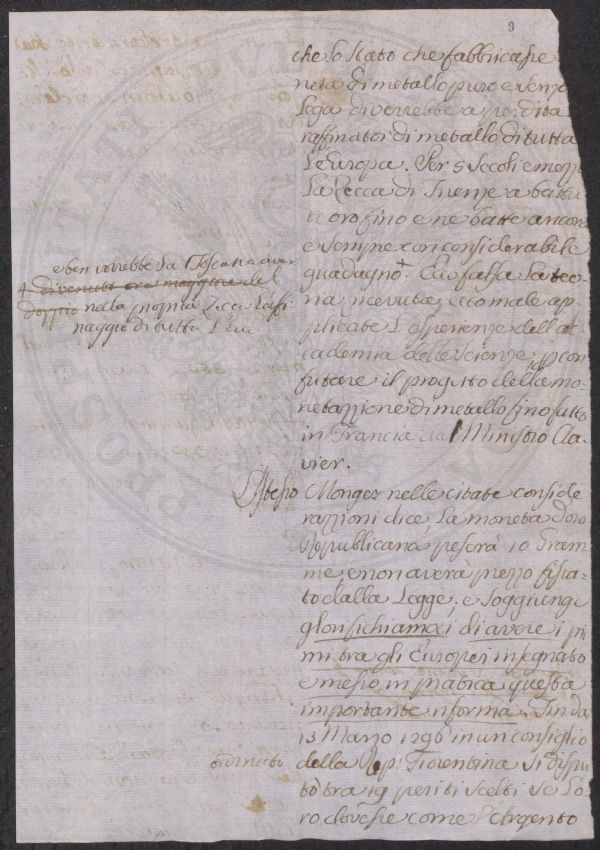 9
che lo Stato che fabbricasse
neta di metallo puro e senza
Lega diverrebbe a perdita
raffinator di metallo di tutta
L'Europa. Per 5 Secoli e mezzo
La Zecca di Firenze a battu
to oro fino e ne batte ancora
e sempre con considerabile
guadagno. + Ecco falsa La teo
ria ricevuta, ecco male ap
plicate L'esperienze dell'ac
cademia delle Scienze p con
futare il progetto della mo
netazzione di metallo fino fatto
in Francia dal Ministro Cla
vier.
+ diventa ora maggiore del
e ben vorrebbe La Toscana aver
doppio nella propria Zecca L'affi
naggio di tutta L'
L'istesso Mongez nelle citate conside
razzioni dice, La moneta d'oro
Reppublicana peserà 10 Gram
me, e non averà prezzo fissa
to dalla Legge; e soggiunge
glorifichiamoci di avere i pri
mi tra gli Europei insegnato
e messo in pratica questa
importante riforma. Fin da
13 Marzo 1296 in un consiglio
tornato della Rep: Fiorentina si dispu
tò tra 19 periti scelti se L'o
ro dovesse come L'Argento